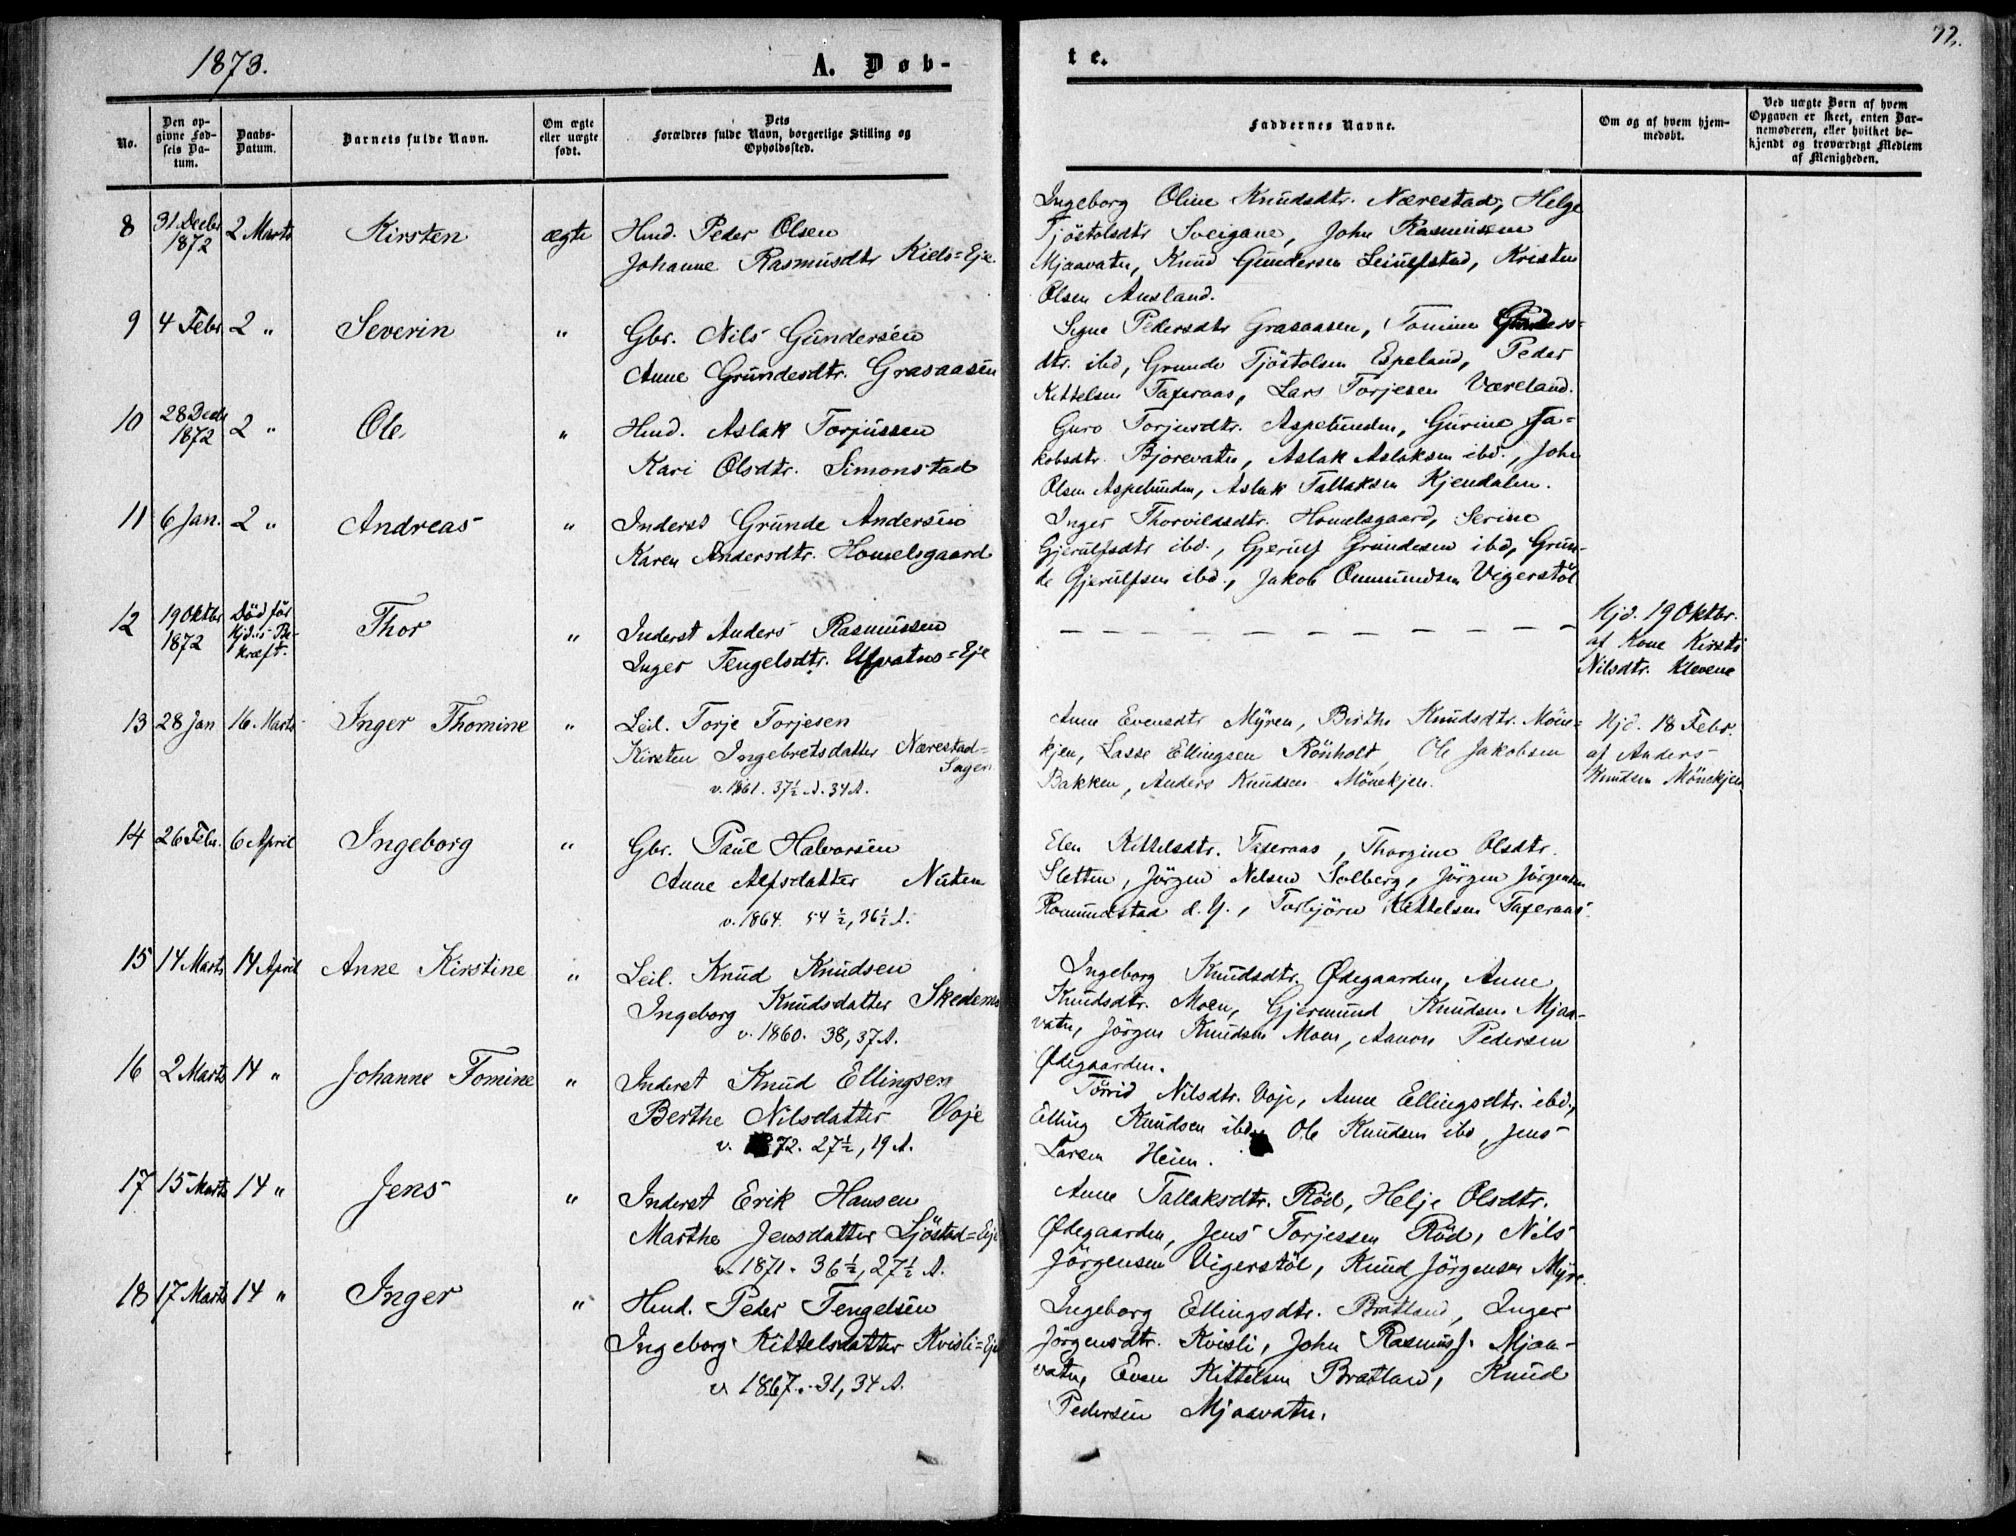 1873.
A. Døb-
te.
72.
No.
Den op-
givne Fød-
sels Da-
tum.
Daabs-
Datum.
Barnets fulde Navn.
Om ægte
eller uægte
født.
Dets
Forældres fulde Navn, borgerlige Stilling og
Opholdssted.
Faddernes Navne.
Om og af hvem hjem-
medøbt.
Ved uægte Børn af hvem
Opgaven er skeet, enten Bar-
nemoderen, eller hvilket be-
kjendt og troværdigt Medlem
af Menigheden.
8 31 Decbr 1872 2 Marts Kirsten ægte Hmd. Peder Olsen
Johanne Rasmusdtr Kiels=Eje
Ingeborg Oline Knudsdtr. Nærestad, Helge
Tjöstolsdtr Sveigane, John Rasmussen
Mjaavatn, Knud Gundersen Leiulfstad, Kristen
Olsen Ausland.
9 4 Febr 2 " Severin " Gbr. Nils Gundersen
Anne Grundesdtr. Grasaasen
Signe Pedersdtr Grasaasen, Tomine Gunders-
dtr. ibd, Grunde Tjöstolsen Espeland, Peder
Kittelsen Taxeraas, Lars Torjesen Væreland.
10 28 Decbr 1872 2 " Ole " Hmd. Aslak Torjussen
Kari Olsdtr. Simonstad
Guro Torjusdtr. Aspelunden, Gurine Ja-
kobsdtr. Bjorevatn, Aslak Aslaksen ibd., John
Olsen Aspelunden, Aslak Tallaksen Kjendalen.
11 6 Jan. 2 " Andreas " Inderst Grunde Andersen
Karen Andersdtr. Homelsgaard
Inger Thorvildsdtr. Homelsgaard, Serine
Gjerulfsdtr ibd., Gjerulf Grundesen ibd, Grun-
de Gjerulfsen ibd., Jakob Omundsen Vigerstöl
12 19 Oktbr 1872 Död för
Hjd.s Be-
kræft. Thor " Inderst Anders Rasmussen
Inger Tengelsdtr. Ulvvatns=Eje
— — — — — — — — — — —
Hjd. 19 Oktbr.
af Kone Kirsti
Nilsdtr. Klevene
13 28 Jan 16. Marts Inger Thomine " Leil. Torje Torjesen
Kirsten Ingebretsdatter Nærestad=
Sagen
v. 1861. 37½ A. 34 A.
Anne Evensdtr Myren, Birthe Knudsdtr. Möne-
kjen, Lasse Ellingsen Rönholt, Ole Jakobsen
Bakken, Anders Knudsen Mönekjen.
Hjd. 18 Febr.
af Anders
Knudsen Mönekjen
14 26 Febr. 6 April Ingeborg " Gbr. Paul Halvorsen
Anne Alfsdatter Nuten
v. 1864. 54½, 36½ A.
Elen Kittelsdtr. Taxeraas, Thorgine Olsdtr.
Sletten, Jörgen Nilsen Solberg, Jörgen Jörgensen
Romundstad d. Y., Torbjörn Kittelsen Taxeraas.
15 14 Marts 14 April Anne Kirstine " Leil. Knud Knudsen
Ingeborg Knudsdatter Skedemo
v. 1860. 38, 37 A.
Ingeborg Knudsdtr. Ødegaarden, Anne
Knudsdtr. Moen, Gjermund Knudsen Mjaa-
vatn, Jörgen Knudsen Moen, Aanon Pedersen
Ødegaarden.
16 2 Marts 14 " Johanne Tomine " Inderst Knud Ellingsen
Berthe Nilsdatter Voje
v. 72. 27½, 19 A.
Torrid Nilsdtr. Voje, Anne Ellingsdtr. ibd.,
Elling Knudsen ibd, Ole Knudsen ibd, Jens
Larsen Heien.
17 15 Marts 14 " Jens " Inderst Erik Hansen
Marthe Jensdatter Sjöstad=Eje
v. 1871. 36½, 27½ A.
Anne Tallaksdtr. Röd, Helje Olsdtr.
Ødegaarden, Jens Torjessen Röd, Nils
Jörgensen Vigerstöl, Knud Jörgensen Myre.
18 17 Marts 14 " Inger " Hmd. Peder Tengelsen
Ingeborg Kittelsdatter Kvisli=Eje
v 1867. 31, 34 A.
Ingeborg Ellingsdtr. Bratland, Inger
Jörgensdtr. Kvisli, John Rasmuss. Mjaa-
vatn, Even Kittelsen Bratland, Knud
Pedersen Mjaavatn.